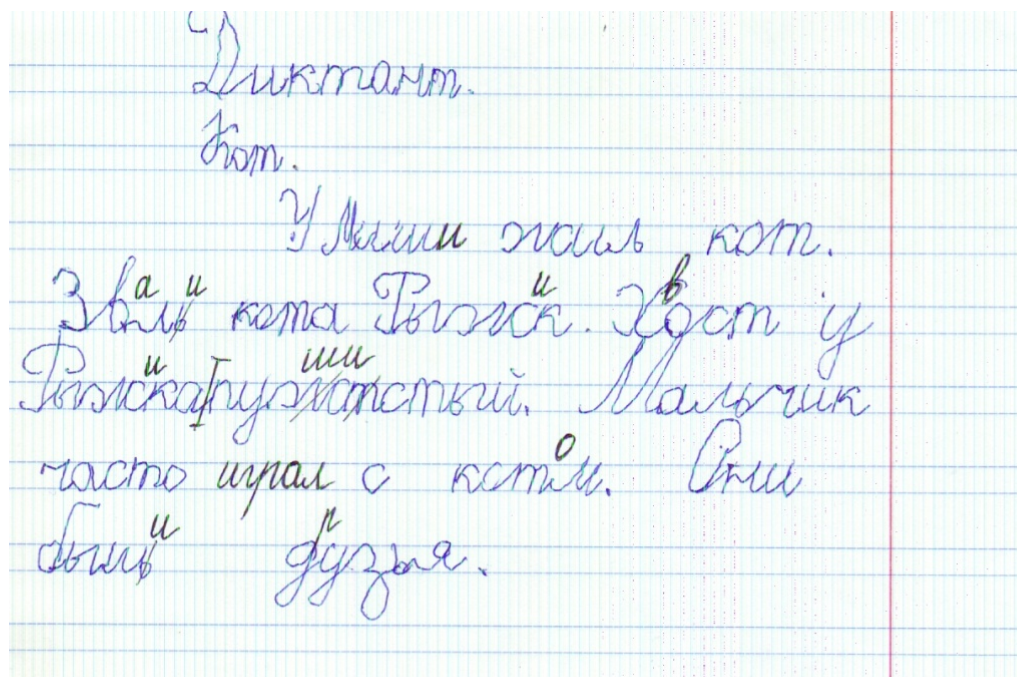 Диктант.
Кот.
У Миши жиль кот.
Звали кота Рыжик. Хвост у
Рыжика пушистый. Мальчик
часто играл с котом. Они
были друзья.